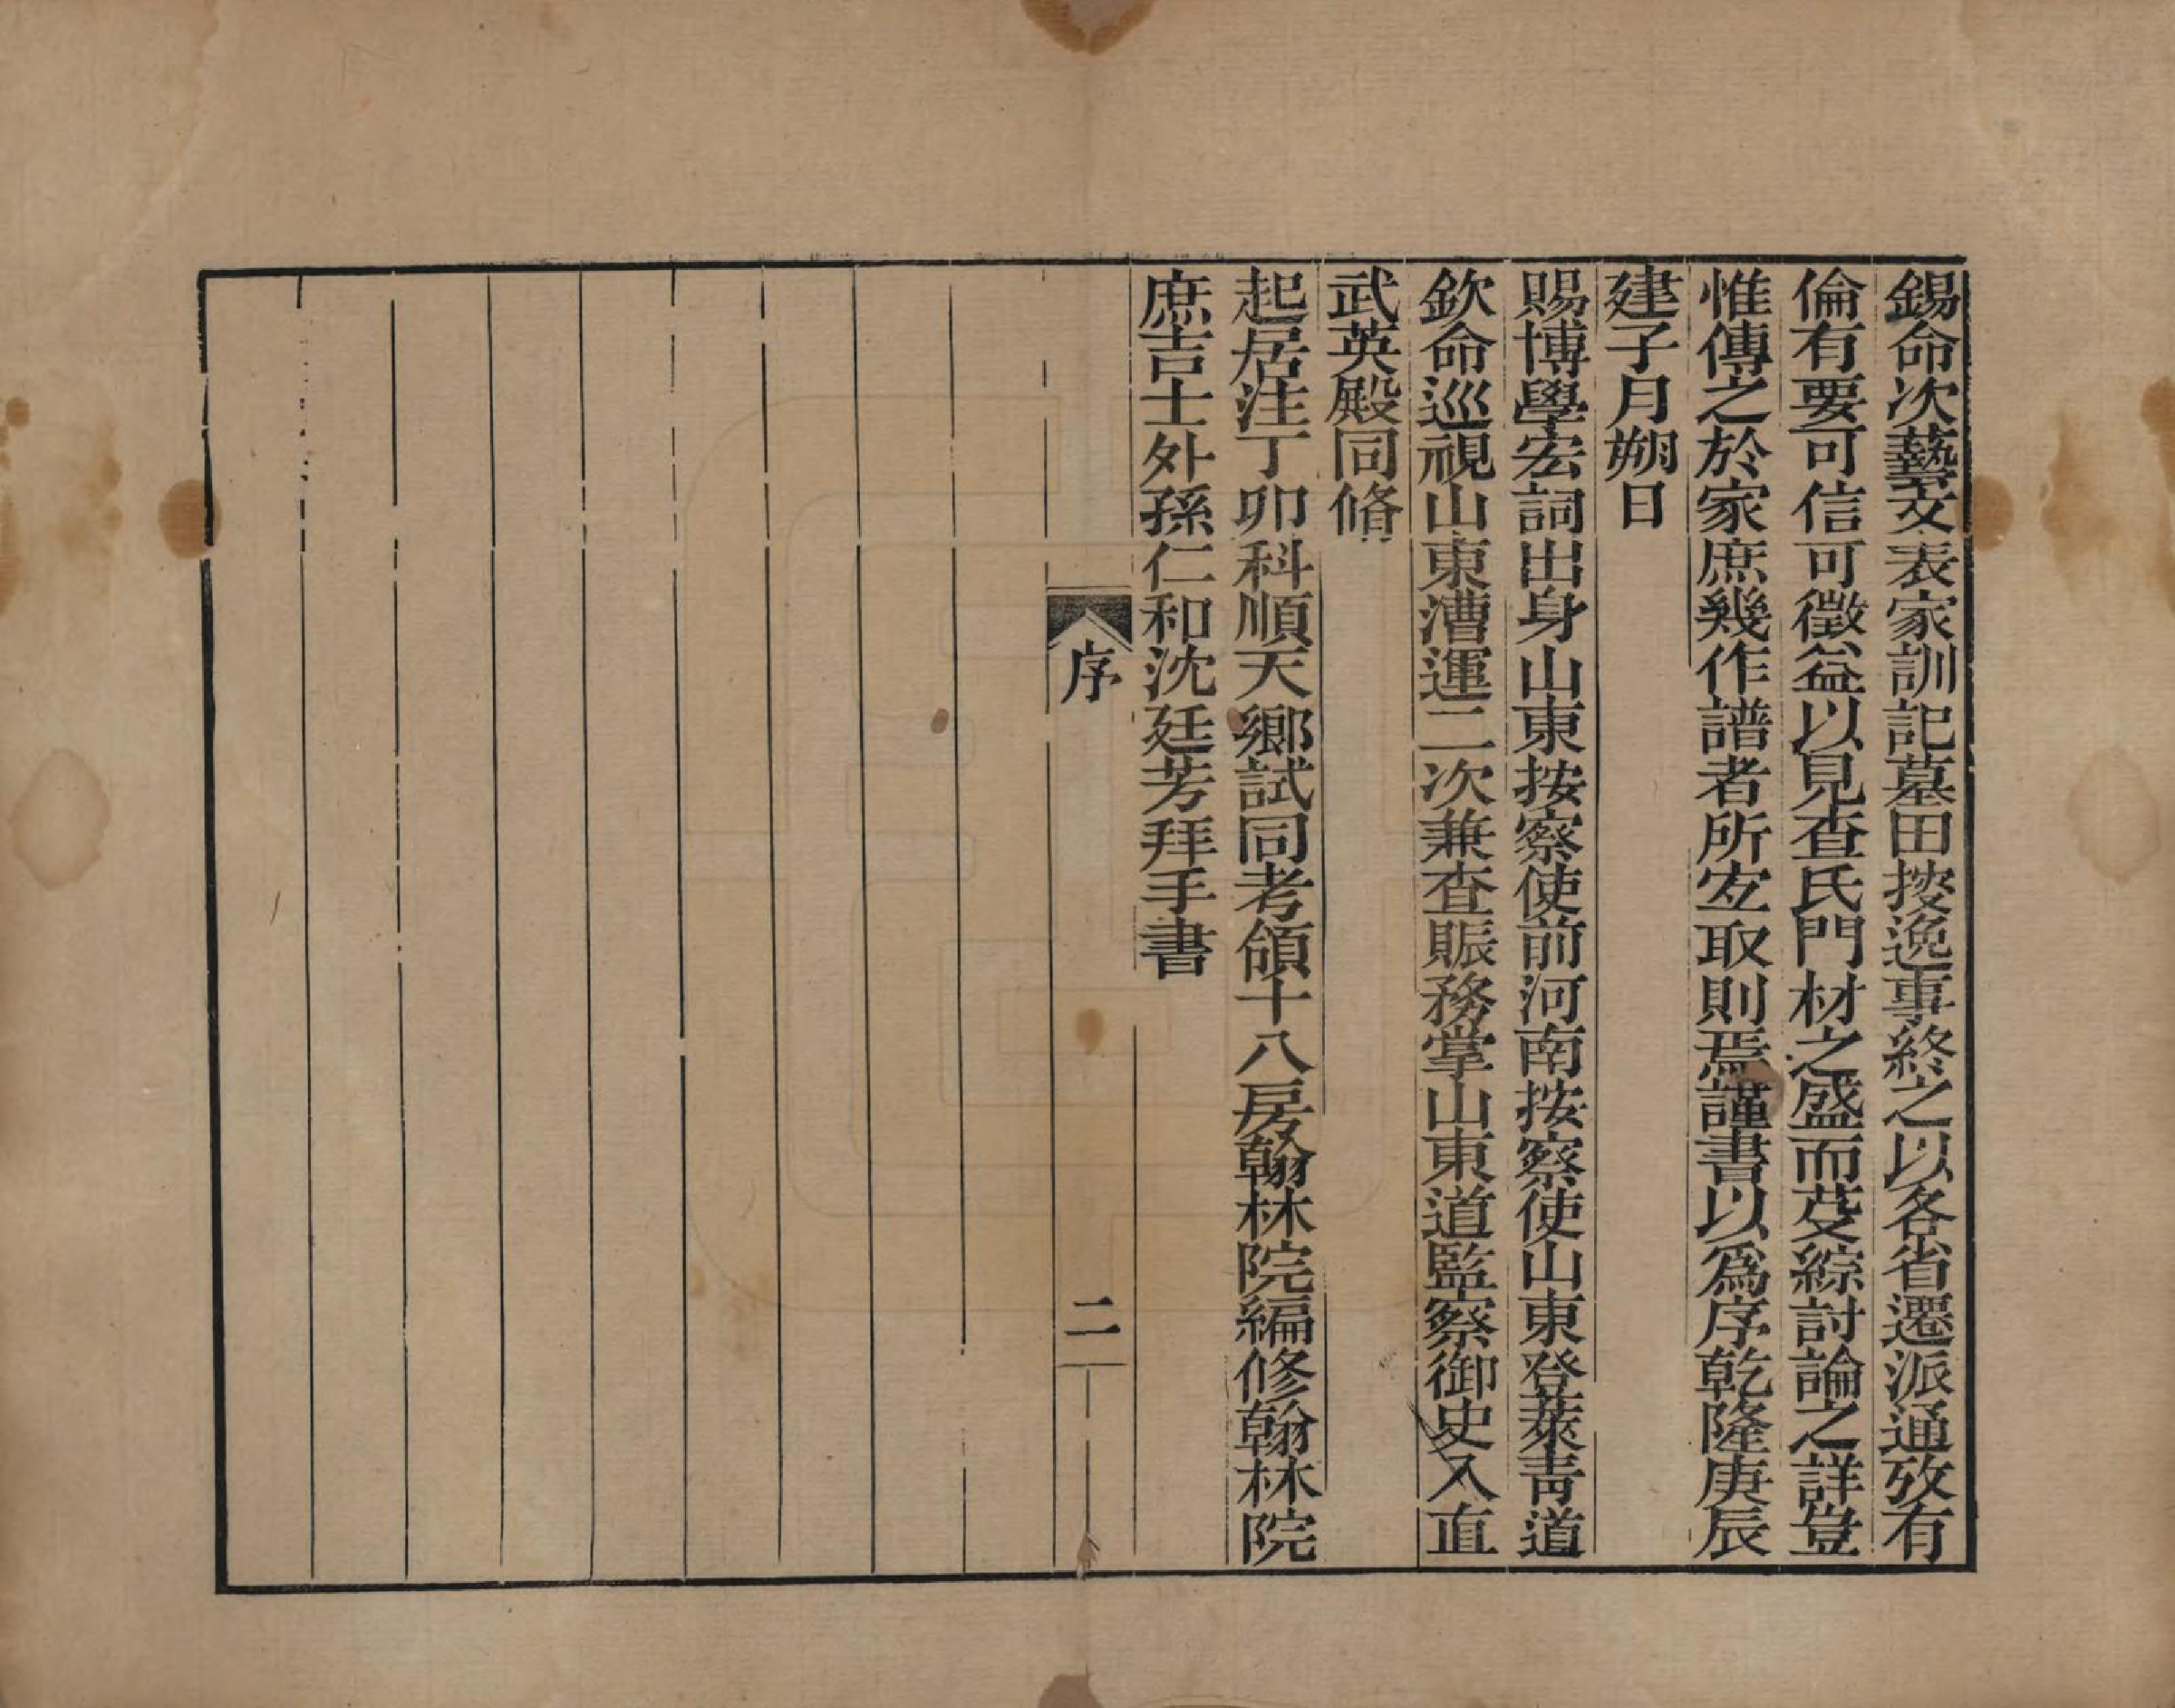 錫命次藝文表家訓記墓田按逸事終之以各省遷派通攷有
倫有要可信可徵益以見查氏門材之盛而芟綜討論之詳豈
惟傳之於家庶幾作譜者所宐取則焉謹書以爲序乾隆庚辰
建子月朔日
賜博學宏詞出身山東按察使前河南按察使山東登萊青道
欽命巡視山東漕運二次兼查賑務掌山東道監察御史入直
武英殿同脩
起居注丁卯科順天鄉試同考領十八房翰林院編修翰林院
庶吉士外孫仁和沈廷芳拜手書
序
二